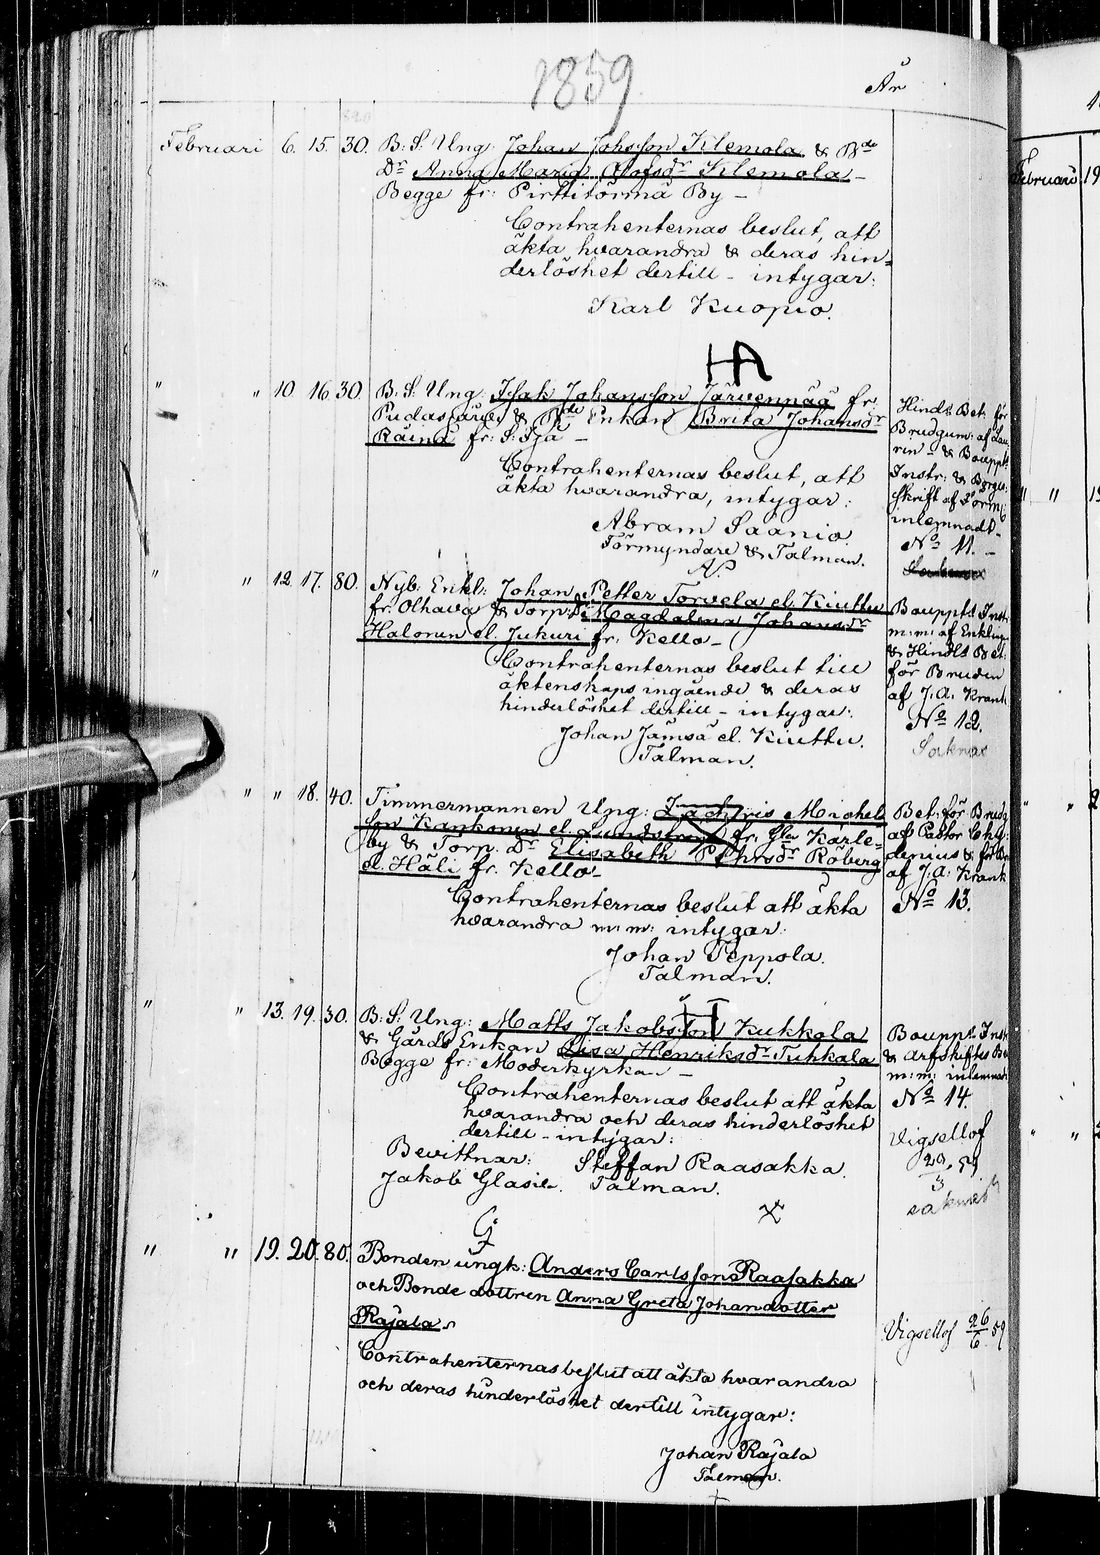 1859
År
Februari 6. 15. 30. B: S: Ung: Johan Johsson Klemola & Bde
Dr Anna Maria Olofsdr Klemola –
Begge fr: Pirttitörmä By –
Contrahenternas beslut, att
äkta hvarandra & deras hin=
derlöshet dertill – intygar:
Karl Kuopio.
HA
" " 10 16 30. B: S: Ung: Isak Johansson Järvennää fr.
Pudasjärvi & Bde Enkan Brita Johansdr
Rainá fr: S: Ijå –
Contrahenternas beslut, att
äkta hvarandra, intygar:
Abram Saanio.
Förmyndare & Talman.
Hinds Bet: för
Brudgum: af Lau
rin – & Bouppt:
Instr: & Borgen
skrift af Förm:
inlemnadt –
No 11. –
" " 12. 17. 80. Nyb: Enkl: Johan Petter Torvela el. Kiuttu
fr: Olhava & Torp: Dr Magdalena Johansdr
Halonen el. Jukuri fr. Kello –
Contrahenternas beslut till
äktenskaps ingående & deras
hinderlöshet dertill – intygar:
Johan Jämsä el. Kiuttu.
Talman.
Bouppt: Inst:
m: m: af Enkling
& Hinds Bet:
för Bruden
af J. A. Krank
No 12.
Saknas
" " " 18. 40. Timmermannen Ung: Zachris Michels
son Kankonen el. Lundström fr. Gla Karle=
by & Torp. Dr Elisabeth Pehrsdr Röberg
el. Häli fr. Kello –
Contrahenternas beslut att äkta
hvarandra m: m: intygar:
Johan Teppola.
Talman.
Bet: för Brudg
af Pastor Chy
denius & för Br
af J. A: Krank
No 13.
" " 13. 19. 30. B: S: Ung: Matts Jakobsson Kukkola
& Gårds Enkan Lisa Henriksdr Tuhkala
Begge fr: Moderkyrkan –
Contrahenternas beslut att äkta
hvarandra och deras hinderlöshet
dertill – intygar:
Bevittnar: Steffan Raasakka.
Jakob Glasie. Talman.
Bouppt: Inst
& Arfskiftes Be
m: m: inlemnad:
No 14.
Vigsellof
29/3 59
saknas
" " 19. 20. 80. Bonden ungk: Anders Carlsson Raasakka
och Bonde dottren Anna Greta Johandotter
Rajala.
Contrahenternas beslut att äkta hvarandra
och deras hinderlöshet dertill intygar:
Johan Rajala
Talman.
Vigsellof 26/6 59
Februari 19